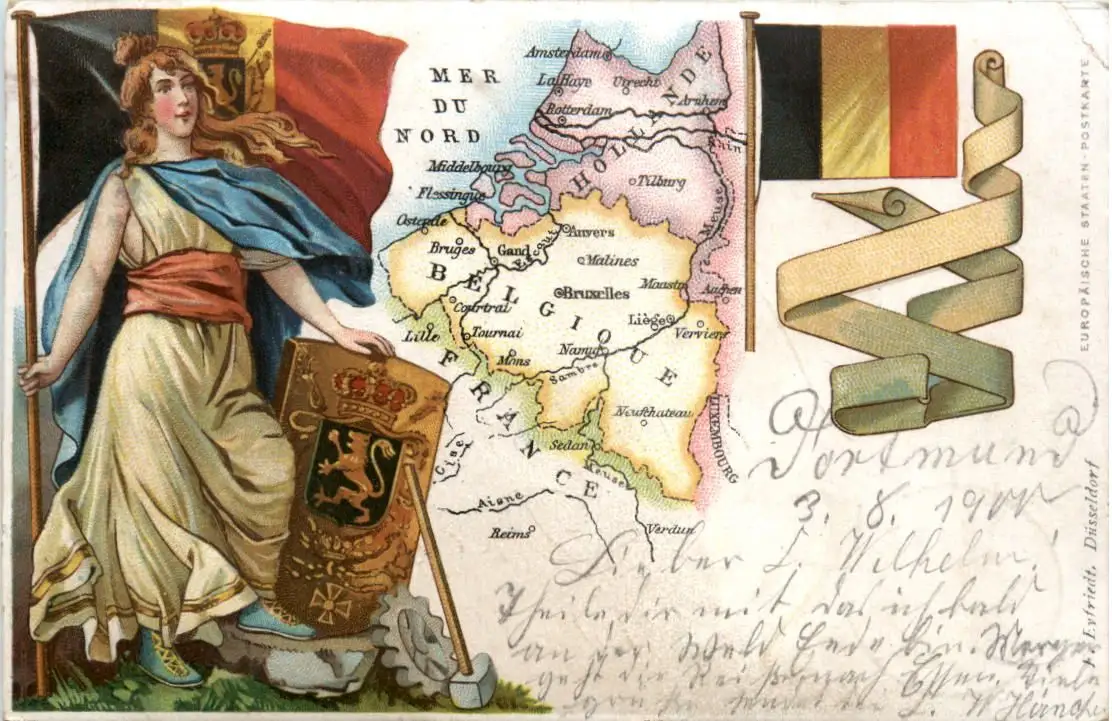 MER
DU
NORD
Amsterdam
La Haye
Utrecht
Rotterdam
Arnhem
HOLLANDE
Rhin
Middelbourg
Flessingue
Tilburg
Meuse
Ostende
Bruges
Gand
Escaut
Anvers
Malines
BELGIQUE
Bruxelles
Aachen
Courtrai
Liège
Verviers
Lille
Tournai
Mons
Namur
Sambre
FRANCE
Neufchateau
Sedan
LUXEMBOURG
Meuse
Oise
Aisne
Reims
Verdun
EUROPÄISCHE STAATEN-POSTKARTE
Düsseldorf
Dortmund
3. 8. 1900
Lieber L. Wilhelm!
Theile dir mit das ich bald
an der Welt Ende bin. Morgen
geht die Reise nach Essen. Viele